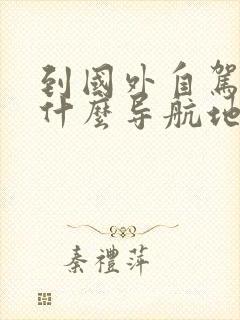 到國外自駕
什麼导航地
秦禮萍